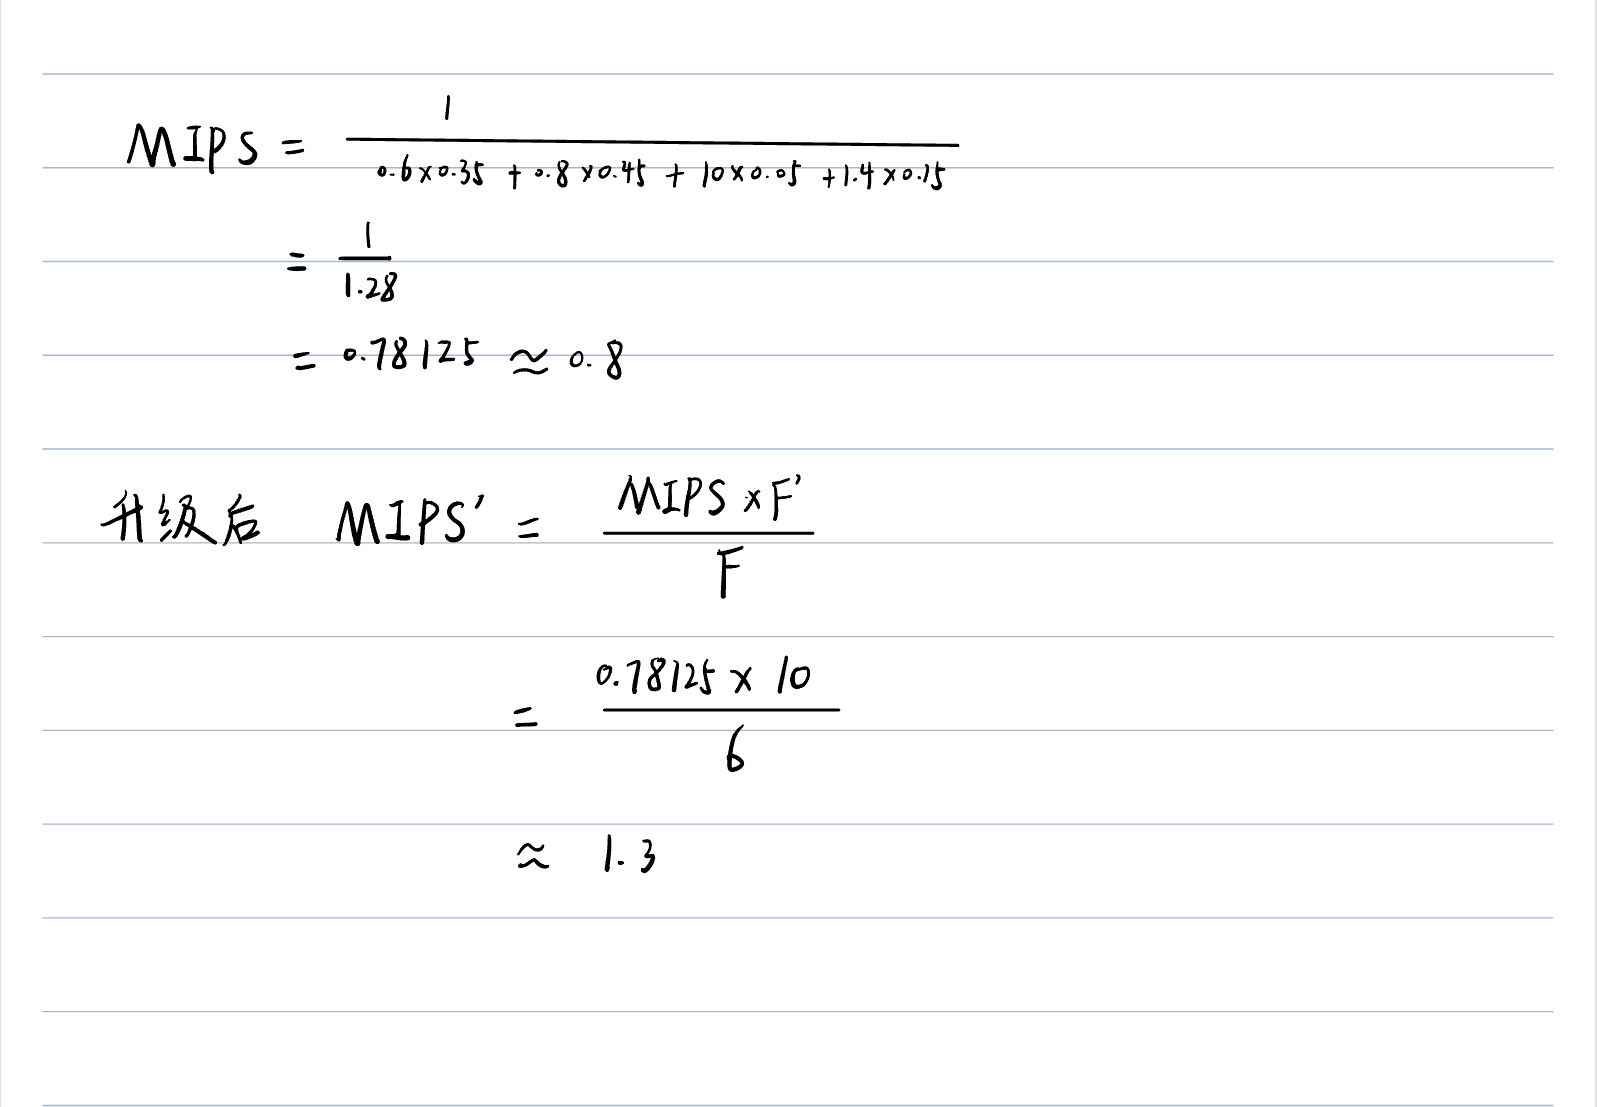 MIPS = 1 / 0.6×0.35 + 0.8×0.45 + 10×0.05 + 1.4×0.15
= 1 / 1.28
= 0.78125 ≈ 0.8
升级后 MIPS' = MIPS × F' / F
= 0.78125 × 10 / 6
≈ 1.3